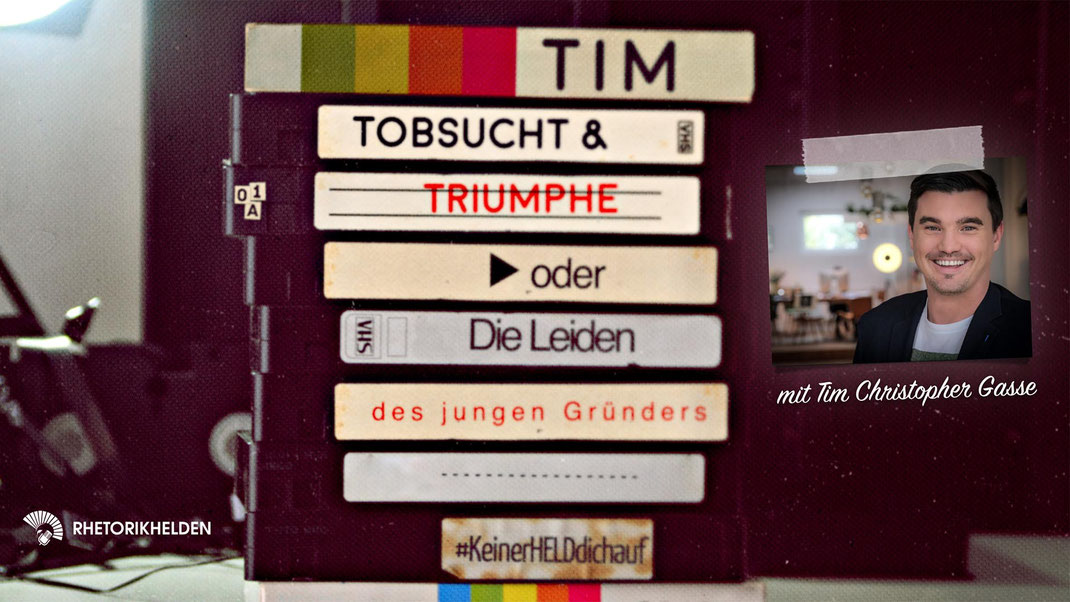 TIM
TOBSUCHT &
VHS
TRIUMPHE
01
A
oder
VHS
Die Leiden
des jungen Gründers
#KeinerHELDdichauf
mit Tim Christopher Gasse
RHETORIKHELDEN